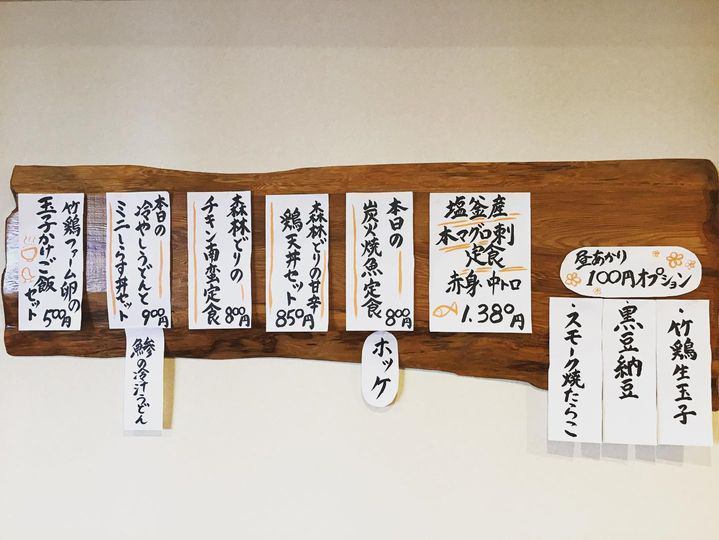 昼あかり
100円オプション
・竹鶏生玉子
・黒豆納豆
・スモーク焼たらこ
塩釜産
本マグロ刺
定食
赤身・中トロ
1.380円
本日の
炭火焼魚定食
800円
ホッケ
森林どりの甘辛
鶏天丼セット
850円
森林どりの
チキン南蛮定食
800円
本日の
冷やしうどんと
ミニしらす丼セット
900円
鯵の冷汁うどん
竹鶏ファーム卵の
玉子かけご飯
セット
500円